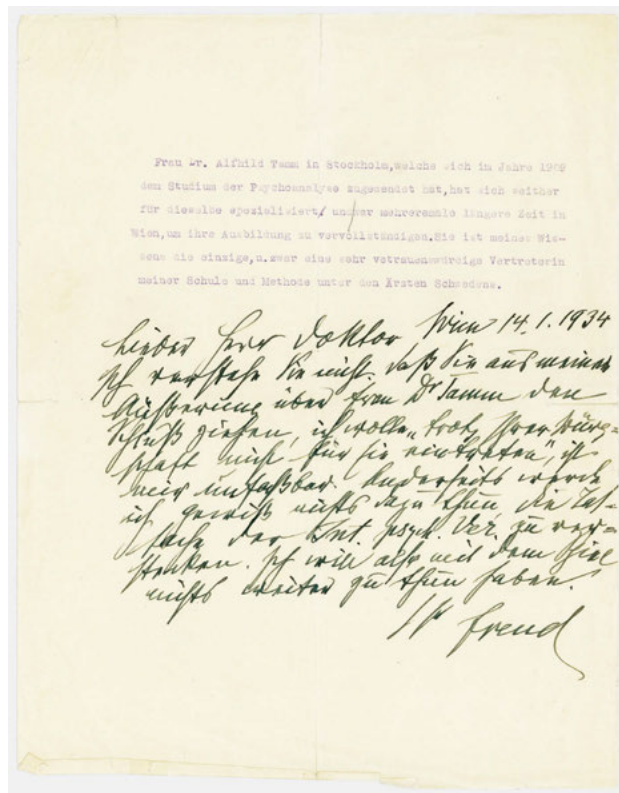 Frau Dr. Alfhild Tamm in Stockholm,welche sich im Jahre 1909
dem Studium der Psychoanalyse zugewendet hat,hat sich seither
für dieselbe spezialisiert/ und war mehreremale längere Zeit in
Wien,um ihre Ausbildung zu vervollständigen.Sie ist meines Wis-
sens die einzige,u.zwar eine sehr vetrauenswürdige Vertreterin
meiner Schule und Methode unter den Ärzten Schwedens.
Lieber Herr Doktor Wien 14.1.1934
Ich verstehe Sie nicht. Daß Sie aus meiner
Äußerung über Frau Dr Tamm den
Schluß ziehen, ich wolle „trotz Ihrer Bürg=
schaft nicht für sie eintreten“, ist
mir unfaßbar. Anderseits werde
ich gewiß nichts dazu thun die Tat-
sache der Int. psych. Ver. zu ver-
stecken. Ich will also mit dem
nichts weiter zu thun haben.
Ihr Freud